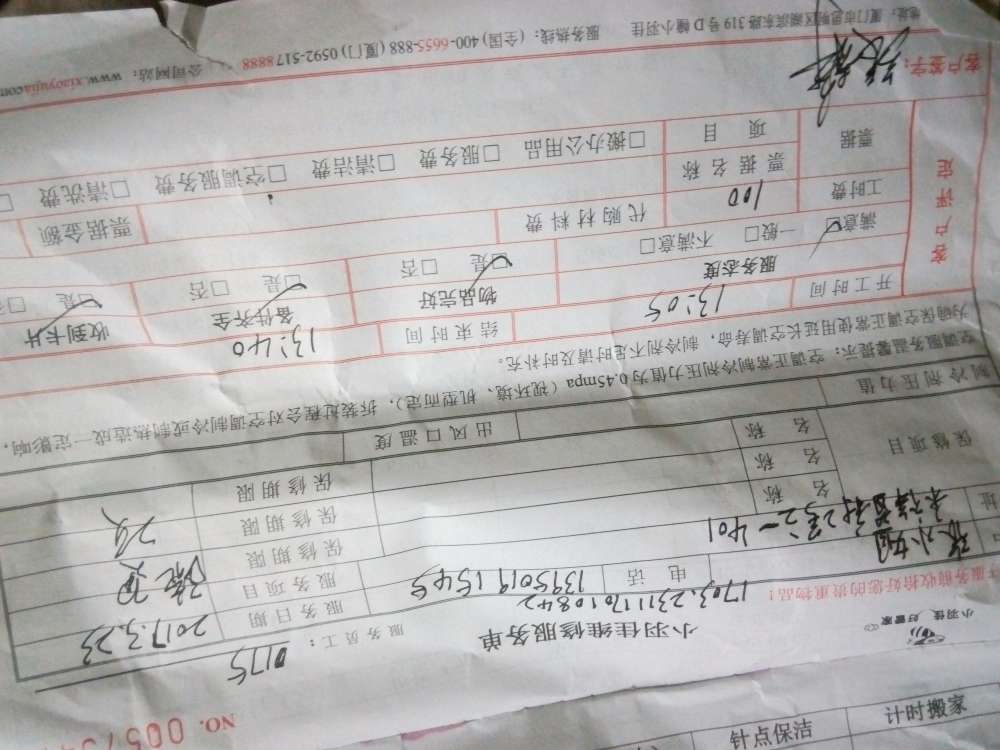 针点保洁 计时搬家
NO. 0057
小羽佳 好管家
小羽佳维修服务单
服务员工： 0175
服务前收拾好您的贵重物品！
1703.231117010842
服务日期 2017.3.23
小姐 电话 13950191545 服务项目
址 2号之一401 保修期限
保修项目 名称 保修期限
名称 保修期限
名称
制冷剂压力值 出风口温度
空调服务温馨提示：空调正常制冷剂压力值为0.45mpa（视环境、机型而定），拆装过程会对空调制冷或制热造成一定影响，
为确保空调正常使用延长空调寿命，制冷剂不足时请及时补充。
客户评定 开工时间 13:05 结束时间 13:40
服务态度 物品完好 备件齐全 收到卡片
满意☑ 一般□ 不满意□ ☑是 □否 ☑是 □否 ☑是
工时费 100 代购材料费 票据金额
票据 票据名称
项目 □搬办公用品 □服务费 □清洁费 □空调服务费 □清洗费
客户签字：
地址：厦门市思明区湖滨东路319号D幢小羽佳 服务热线：(全国) 400-6655-888 (厦门) 0592-5178888 公司网站：www.xiaoyujia.com